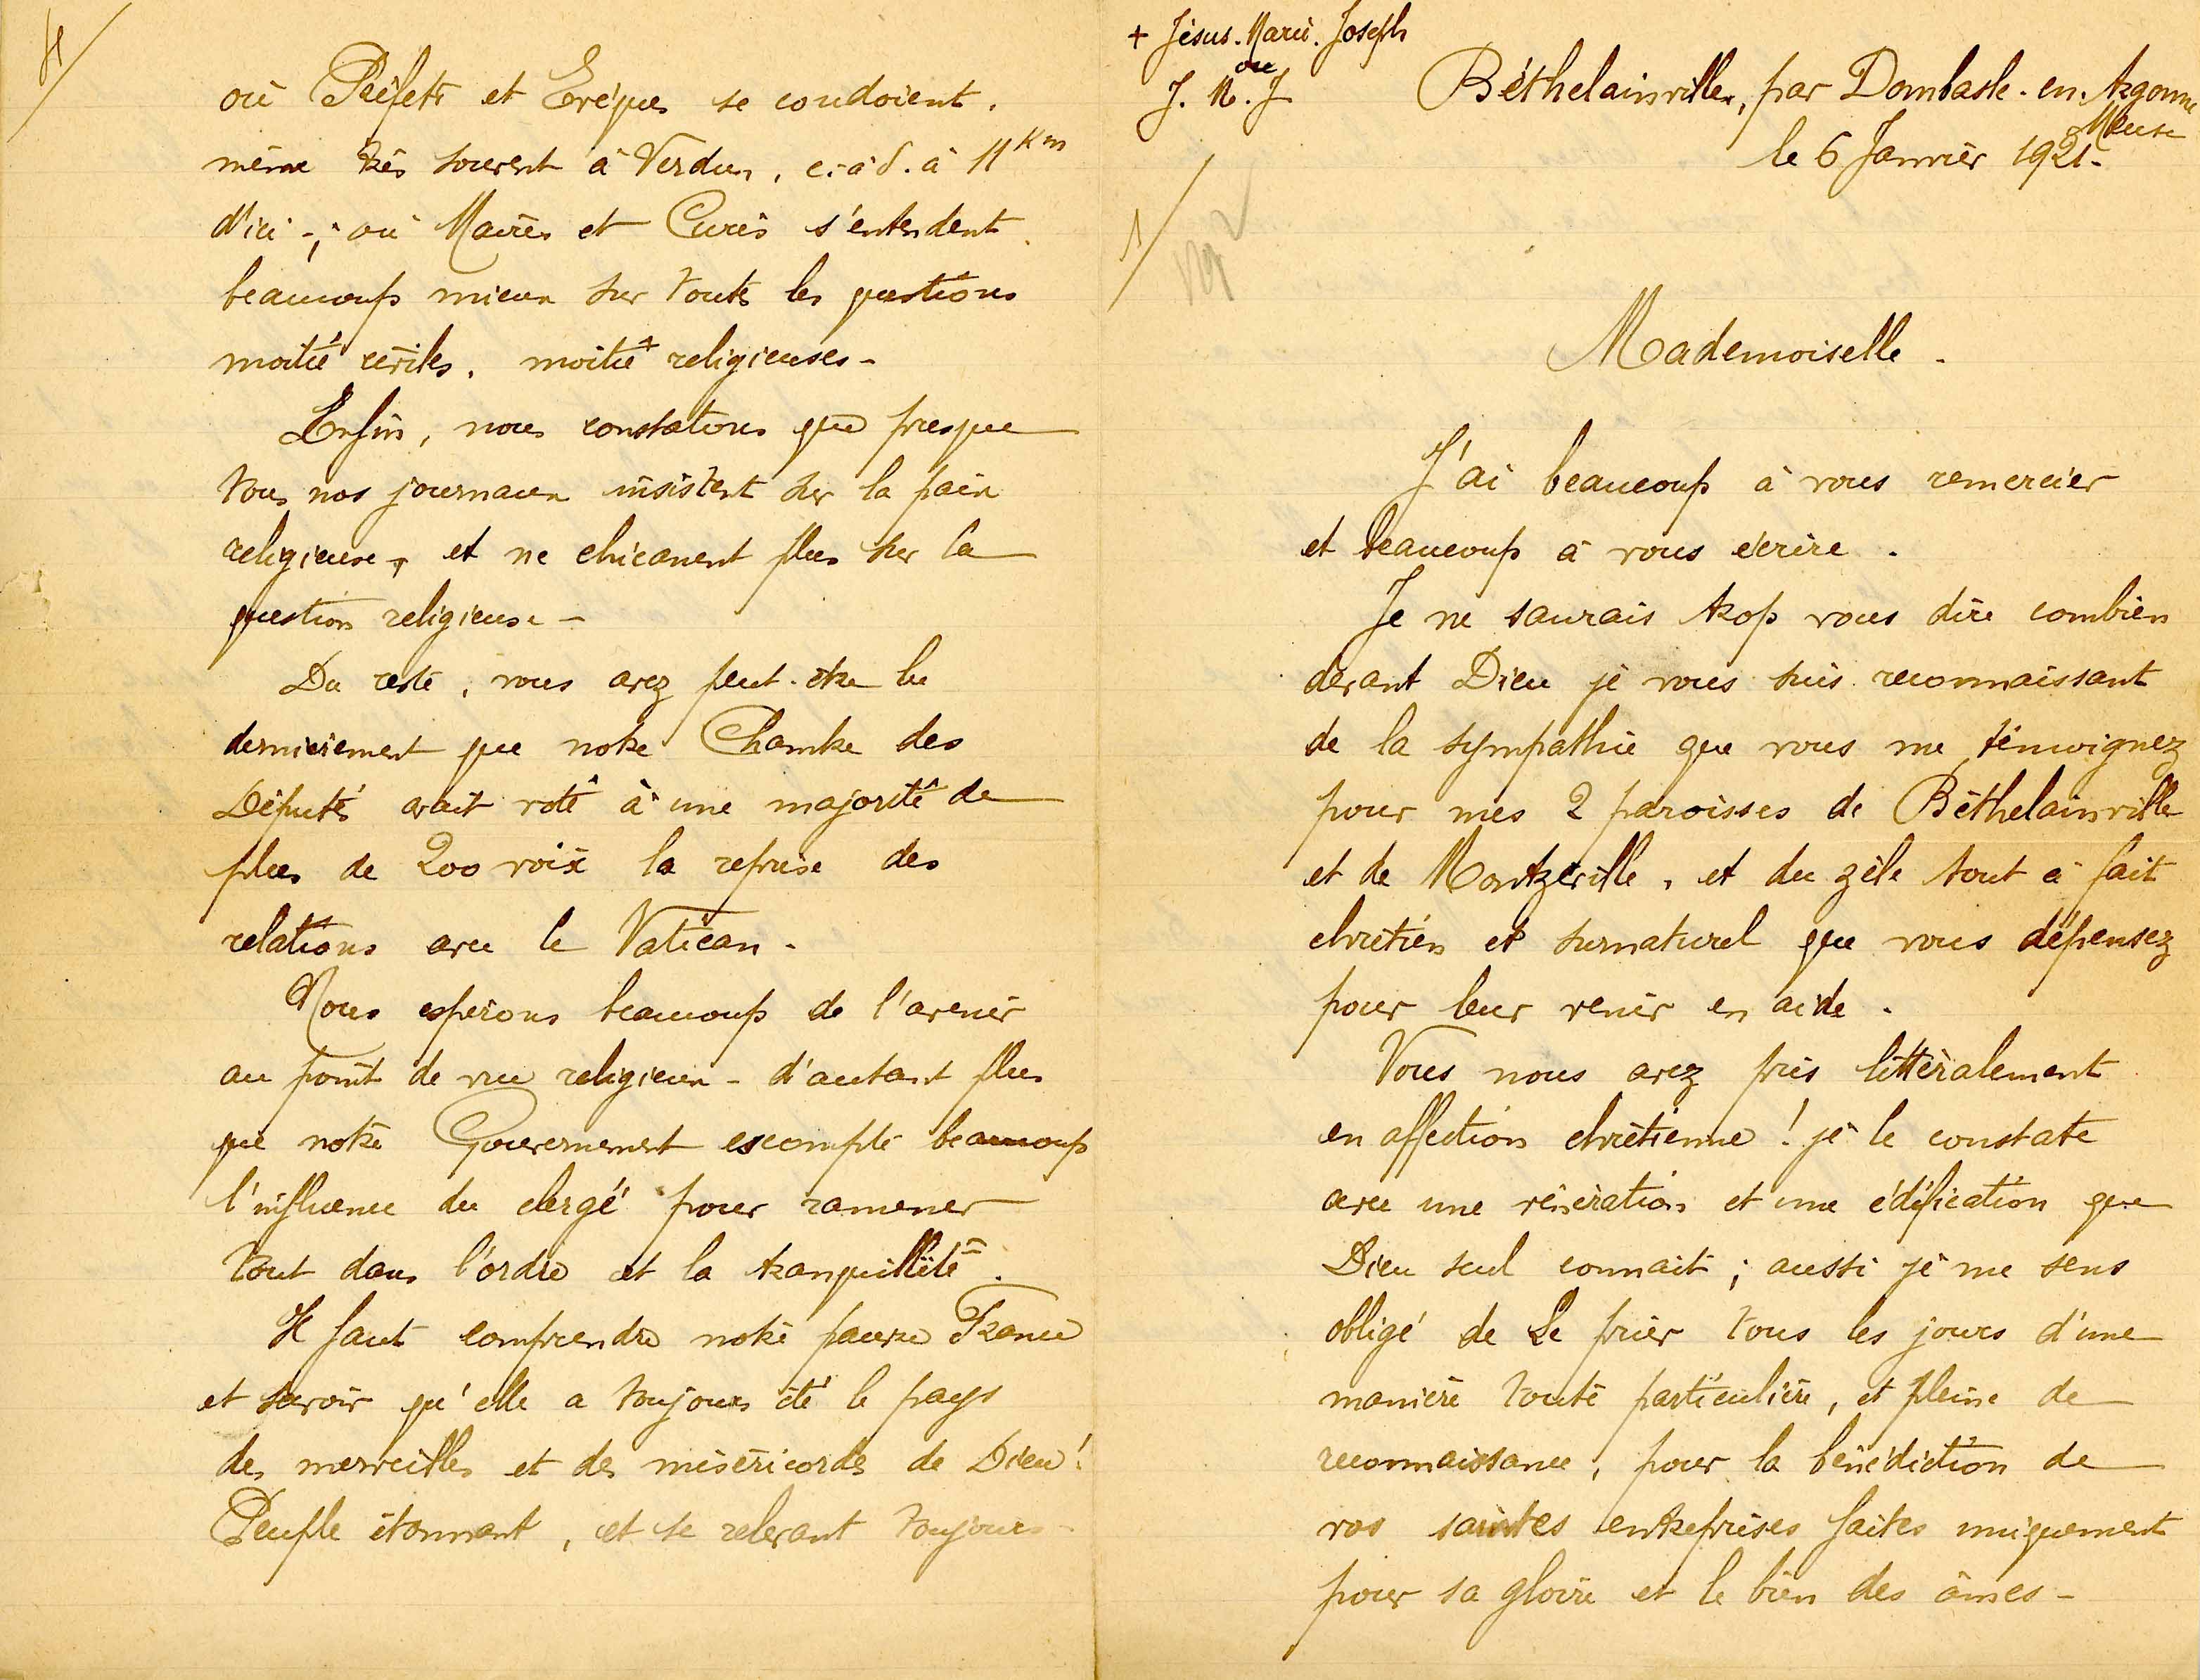 4/
où Préfets et Evêques se coudoient,
même très souvent à Verdun, c.-à-d. à 11 Km
d'ici -; où Maires et Curés s'entendent
beaucoup mieux sur toutes les questions
moitié civiles, moitié religieuses -
Enfin, nous constatons que presque
tous nos journaux insistent sur la paix
religieuse, et ne chicanent plus sur la
question religieuse -
Du reste, vous avez peut-être lu
dernièrement que notre Chambre des
Députés avait voté à une majorité de
plus de 200 voix la reprise des
relations avec le Vatican.
Nous espérons beaucoup de l'avenir
au point de vue religieux - d'autant plus
que notre Gouvernement escompte beaucoup
l'influence du clergé pour ramener
tout dans l'ordre et la tranquillité.
Il faut comprendre notre pauvre France
et savoir qu'elle a toujours été le pays
des merveilles et des miséricordes de Dieu!
Peuple étonnant, et se relevant toujours -
+ Jésus. Marie. Joseph
ou
J. M. J
Béthelainville, par Dombasle-en-Argonne
Meuse
le 6 Janvier 1921.
1/
Mademoiselle.
J'ai beaucoup à vous remercier
et beaucoup à vous écrire.
Je ne saurais trop vous dire combien
devant Dieu je vous suis reconnaissant
de la sympathie que vous me témoignez
pour mes 2 paroisses de Béthelainville
et de Montzéville, et du zèle tout à fait
chrétien et surnaturel que vous dépensez
pour leur venir en aide.
Vous nous avez pris littéralement
en affection chrétienne! je le constate
avec une vénération et une édification que
Dieu seul connait; aussi je me sens
obligé de Le prier tous les jours d'une
manière toute particulière, et pleine de
reconnaissance, pour la bénédiction de
vos saintes entreprises faites uniquement
pour sa gloire et le bien des âmes -